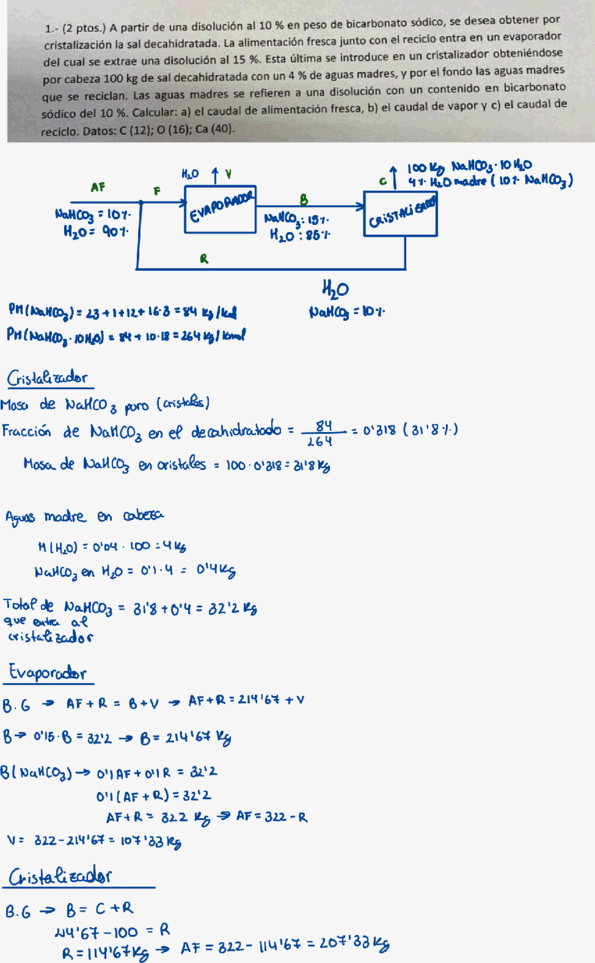 1.- (2 ptos.) A partir de una disolución al 10 % en peso de bicarbonato sódico, se desea obtener por
cristalización la sal decahidratada. La alimentación fresca junto con el reciclo entra en un evaporador
del cual se extrae una disolución al 15 %. Esta última se introduce en un cristalizador obteniéndose
por cabeza 100 kg de sal decahidratada con un 4 % de aguas madres, y por el fondo las aguas madres
que se reciclan. Las aguas madres se refieren a una disolución con un contenido en bicarbonato
sódico del 10 %. Calcular: a) el caudal de alimentación fresca, b) el caudal de vapor y c) el caudal de
reciclo. Datos: C (12); O (16); Ca (40).
H2O ↑ V
C ↑ 100 Kg NaHCO3·10H2O
4% H2O madre (10% NaHCO3)
AF
F
EVAPORADOR
B
CRISTALIZADOR
NaHCO3 = 10%
H2O = 90%
NaHCO3: 15%
H2O: 85%
R
H2O
NaHCO3 = 10%
PM (NaHCO3) = 23 + 1 + 12 + 16·3 = 84 kg/kmol
PM (NaHCO3·10H2O) = 84 + 10·18 = 264 kg/kmol
Cristalizador
Masa de NaHCO3 puro (cristales)
Fracción de NaHCO3 en el decahidratado = 84/264 = 0'318 (31'8%)
Masa de NaHCO3 en cristales = 100·0'318 = 31'8 kg
Aguas madre en cabeza
M(H2O) = 0'04 · 100 = 4 kg
NaHCO3 en H2O = 0'1·4 = 0'4 kg
Total de NaHCO3 = 31'8 + 0'4 = 32'2 kg
que entra al
cristalizador
Evaporador
B.G → AF + R = B + V → AF + R = 214'67 + V
B → 0'15·B = 32'2 → B = 214'67 kg
B(NaHCO3) → 0'1 AF + 0'1 R = 32'2
0'1 (AF + R) = 32'2
AF + R = 322 kg → AF = 322 - R
V = 322 - 214'67 = 107'33 kg
Cristalizador
B.G → B = C + R
214'67 - 100 = R
R = 114'67 kg → AF = 322 - 114'67 = 207'33 kg